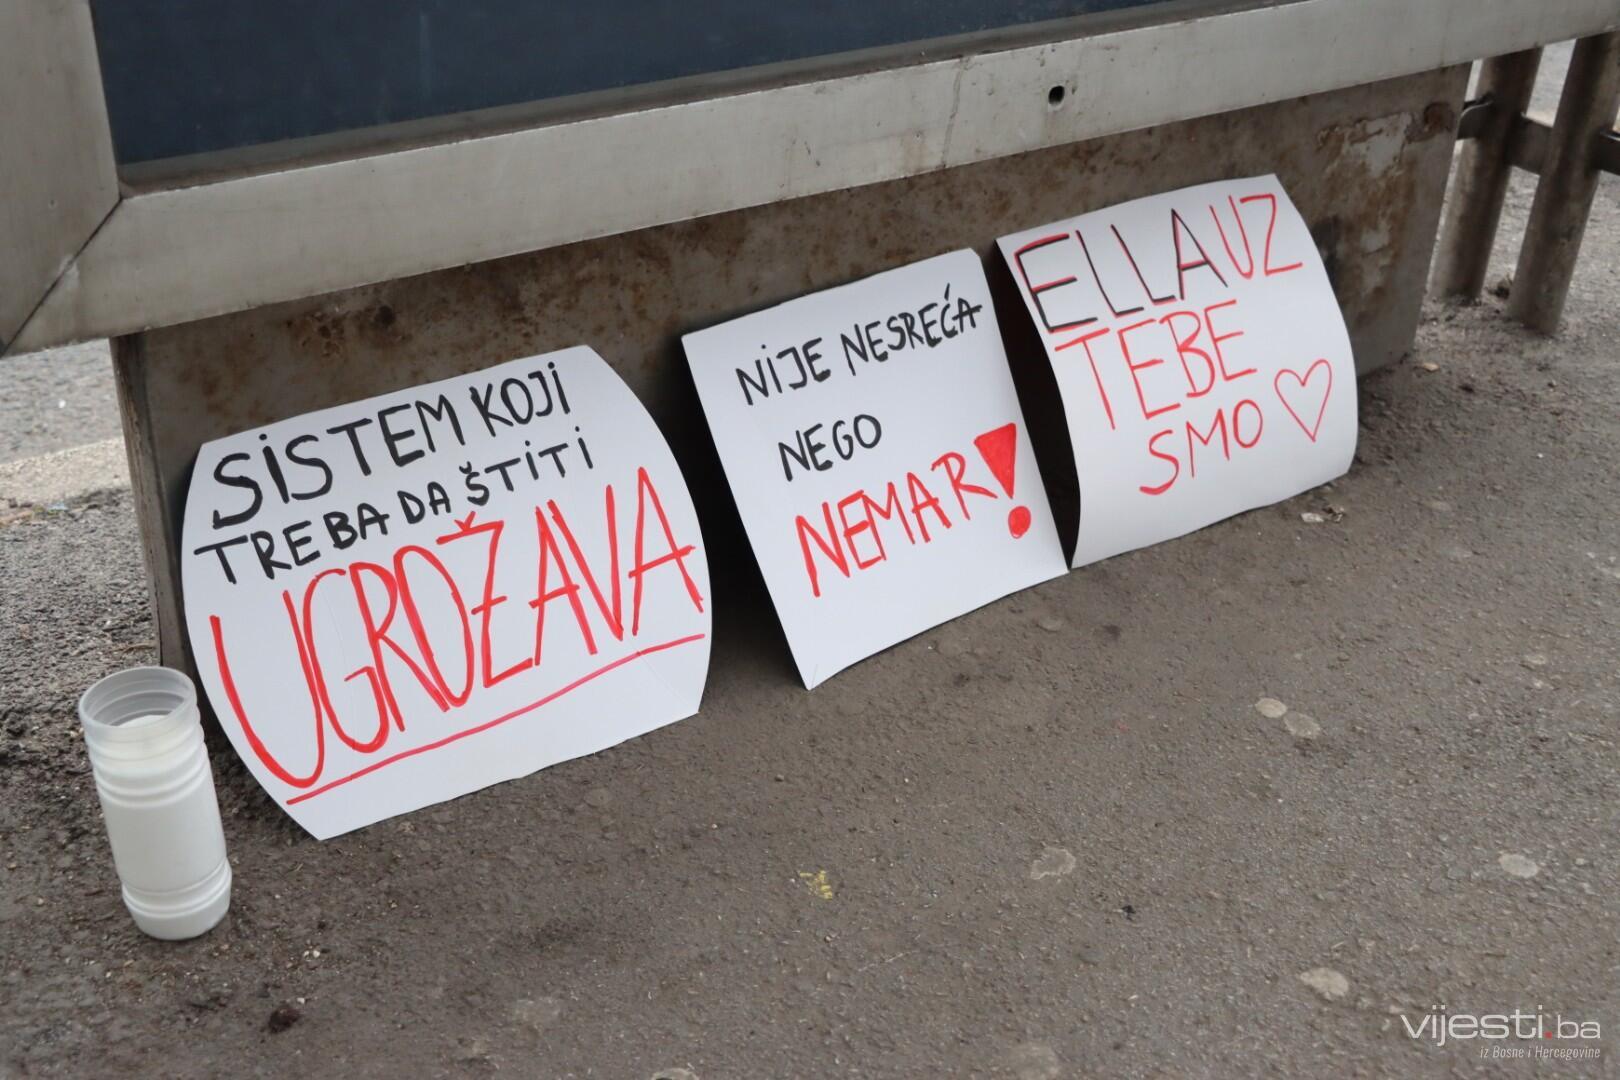 SISTEM KOJI
TREBA DA ŠTITI
UGROŽAVA
NIJE NESREĆA
NEGO
NEMAR!
ELLA UZ
TEBE
SMO
vijesti.ba
iz Bosne i Hercegovine